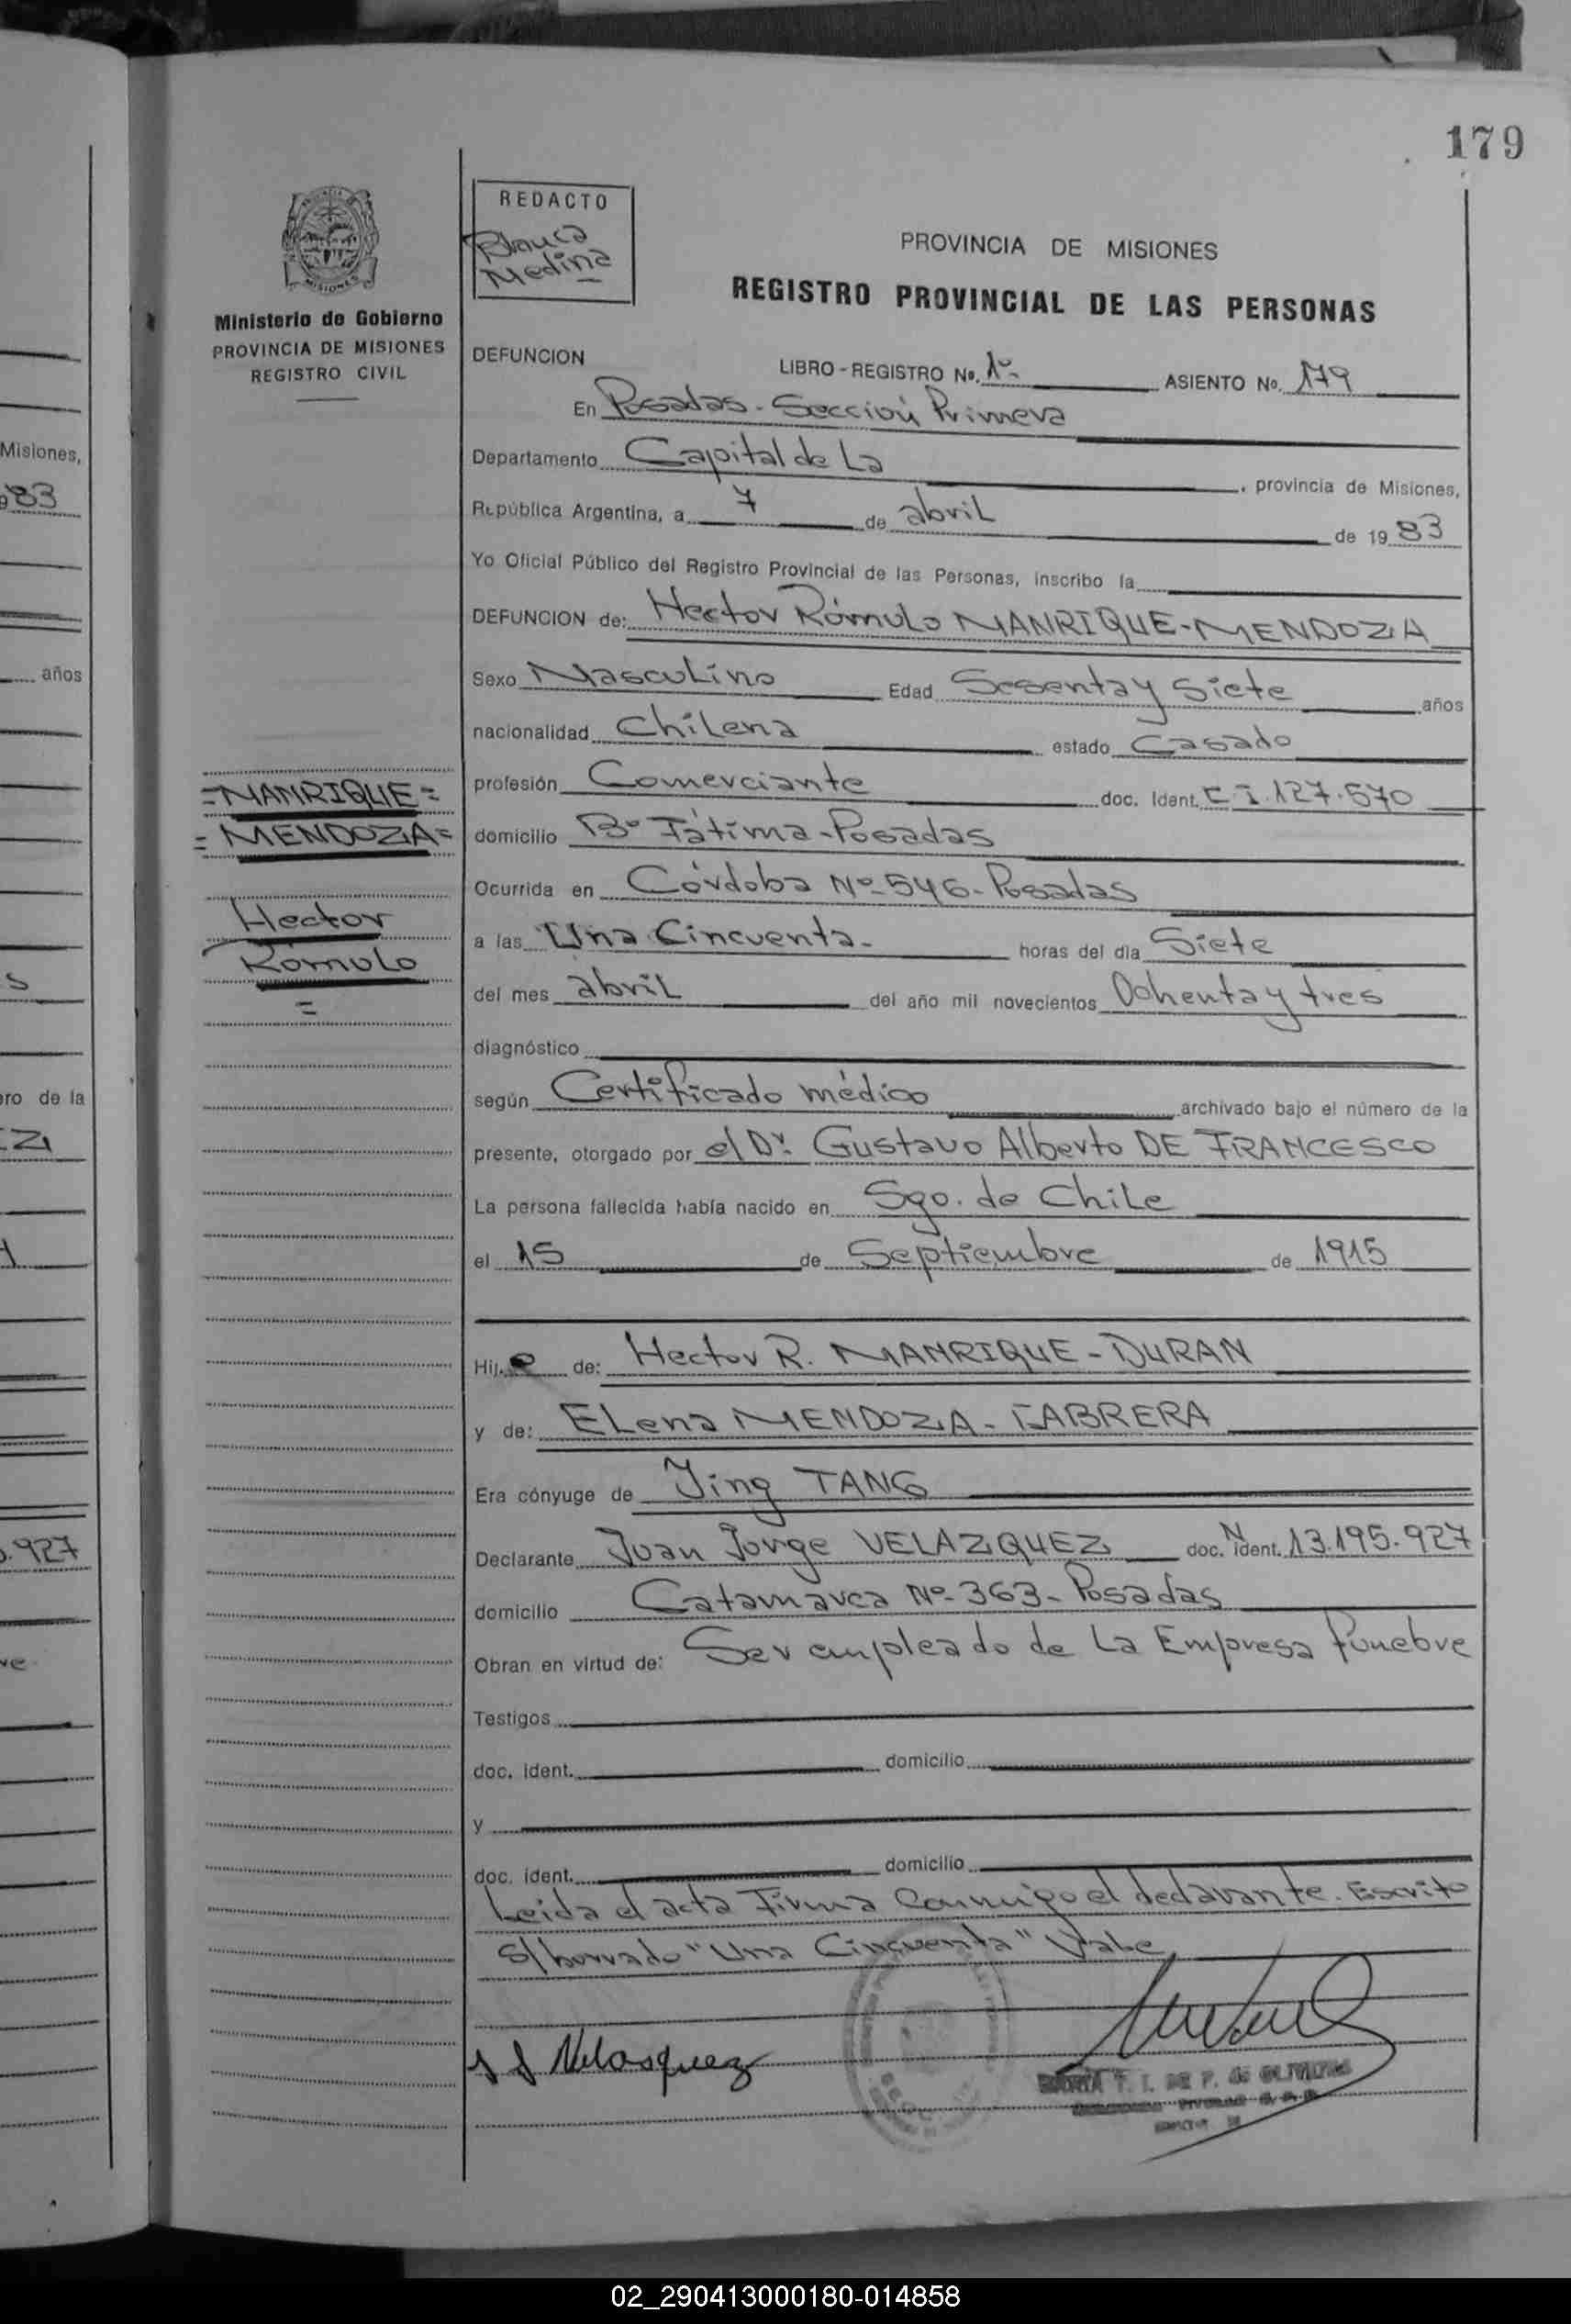 179
REDACTO
Blanca
Medina
MISIONES
Ministerio de Gobierno
PROVINCIA DE MISIONES
REGISTRO CIVIL
PROVINCIA DE MISIONES
REGISTRO PROVINCIAL DE LAS PERSONAS
DEFUNCION LIBRO - REGISTRO No. 1º- ASIENTO No. 179
En Posadas - Sección Primera
Departamento Capital de La , provincia de Misiones,
República Argentina, a 7 de abril de 1983
Yo Oficial Público del Registro Provincial de las Personas, inscribo la
DEFUNCION de: Hector Rómulo MANRIQUE-MENDOZA
Sexo Masculino Edad Sesenta y Siete años
nacionalidad Chilena estado Casado
profesión Comerciante doc. Ident. C.I.127.570
domicilio Bº Fátima-Posadas
Ocurrida en Córdoba Nº-546-Posadas
a las Una Cincuenta- horas del día Siete
del mes abril del año mil novecientos Ochenta y tres
diagnóstico
según Certificado médico archivado bajo el número de la
presente, otorgado por el Dr. Gustavo Alberto DE FRANCESCO
La persona fallecida había nacido en Sgo. de Chile
el 15 de Septiembre de 1915
Hij o de: Hector R. MANRIQUE-DURAN
y de: Elena MENDOZA-CABRERA
Era cónyuge de Jing TANG
Declarante Juan Jorge VELAZQUEZ doc. N ident. 13.195.927
domicilio Catamarca Nº-363-Posadas
Obran en virtud de: Ser empleado de La Empresa funebre
Testigos
doc. ident. domicilio
y
doc. ident. domicilio
Leida el acta Firma Conmigo el declarante. Escrito
S/borrado "Una Cincuenta" Vale
J J Velasquez
MARIA T. I. DE P. de OLIVEIRA
=MANRIQUE=
=MENDOZA=
Hector
Romulo
=
Misiones,
983
años
s
ero de la
EZ
.927
re
02_290413000180-014858